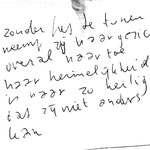 zonder het te tonen
neemt zij haar gezic
overal naar toe
haar heimelijkheid
is haar zo heilig
dat zij niet anders
kan